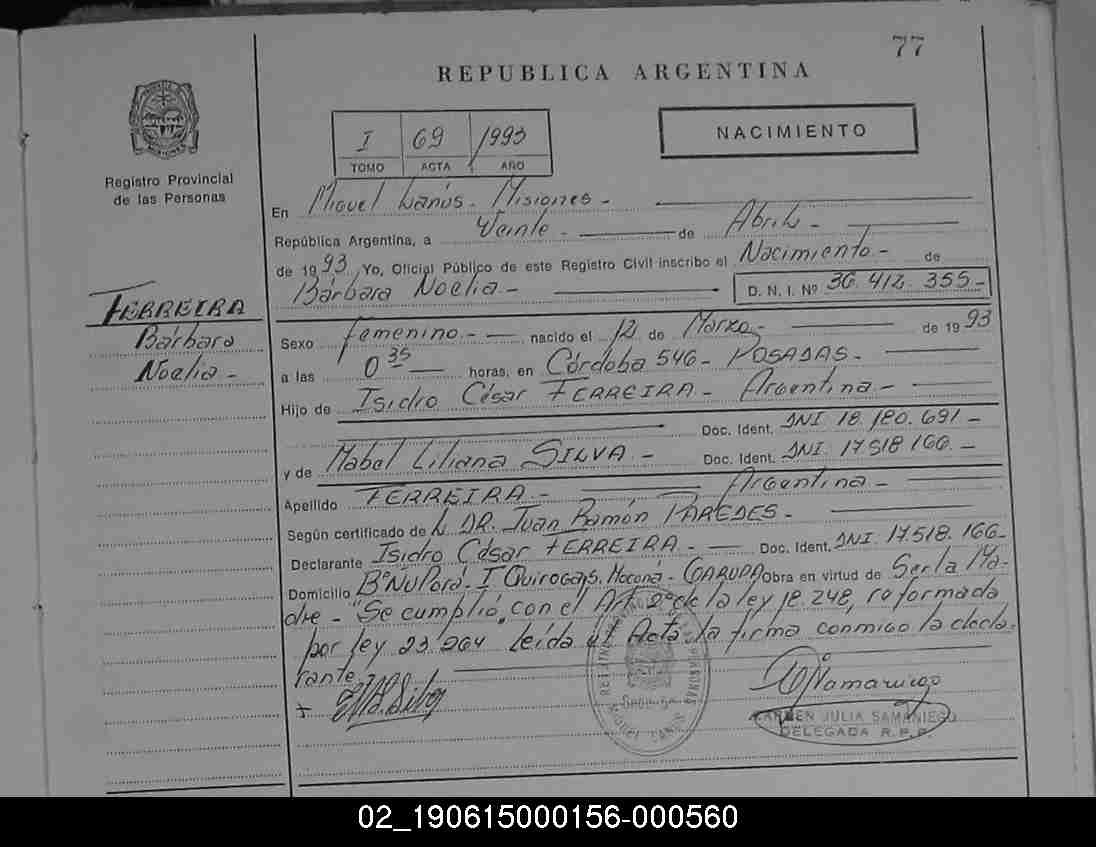 77
REPUBLICA ARGENTINA
I 69 1993
TOMO ACTA AÑO
NACIMIENTO
Registro Provincial
de las Personas
En Miguel Lanús - Misiones -
República Argentina, a Veinte - de Abril -
de 1993, Yo, Oficial Público de este Registro Civil inscribo el Nacimiento - de
Bárbara Noelia - D. N. I. Nº 36.412.355 -
FERREIRA
Bárbara
Noelia -
Sexo femenino - nacido el 12 de Marzo - de 1993
a las 0 35 horas, en Córdoba 546 - POSADAS -
Hijo de Isidro César FERREIRA - Argentina -
Doc. Ident. DNI. 18.180.691 -
y de Mabel Liliana SILVA - Doc. Ident. DNI. 17.518.166 -
Argentina -
Apellido FERREIRA -
Según certificado de L. DR. Juan Ramón PAREDES -
Declarante Isidro César FERREIRA - Doc. Ident. DNI. 17.518.166 -
Domicilio Bº Ñu Porá - I Quirogas. Moconá - GARUPA Obra en virtud de Ser la Ma-
dre - "Se cumplió con el Art. 2º de la ley 18.248, reformada
por ley 23.264 Leída el Acta la firma conmigo la decla-
rante -
REGISTRO PROVINCIAL DE LAS PERSONAS
MIGUEL LANUS
CARMEN JULIA SAMANIEGO
DELEGADA R.P.P.
02_190615000156-000560